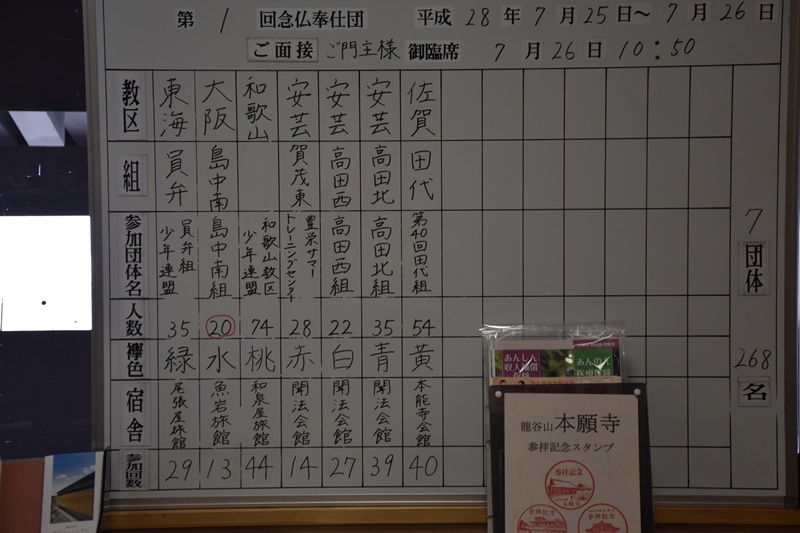 第 1 回念仏奉仕団 平成 28 年 7 月 25 日〜 7 月 26 日
ご面接 ご門主様 御臨席 7 月 26 日 10:50
教区 東海 大阪 和歌山 安芸 安芸 安芸 佐賀
組 員弁 島中南 賀茂東 高田西 高田北 田代
参加団体名 員弁組少年連盟 島中南組 和歌山教区少年連盟 豊栄サマートレーニングセンター 高田西組 高田北組 第40回田代組
人数 35 20 74 28 22 35 54
襷色 緑 水 桃 赤 白 青 黄
宿舎 尾張屋旅館 魚岩旅館 和泉屋旅館 聞法会館 聞法会館 聞法会館 本能寺会館
参加回数 29 13 44 14 27 39 40
7 団体
268 名
あんしん
収入補償
保険
あんのん
医療保険
龍谷山 本願寺
参拝記念スタンプ
参拝記念
参拝記念
参拝記念